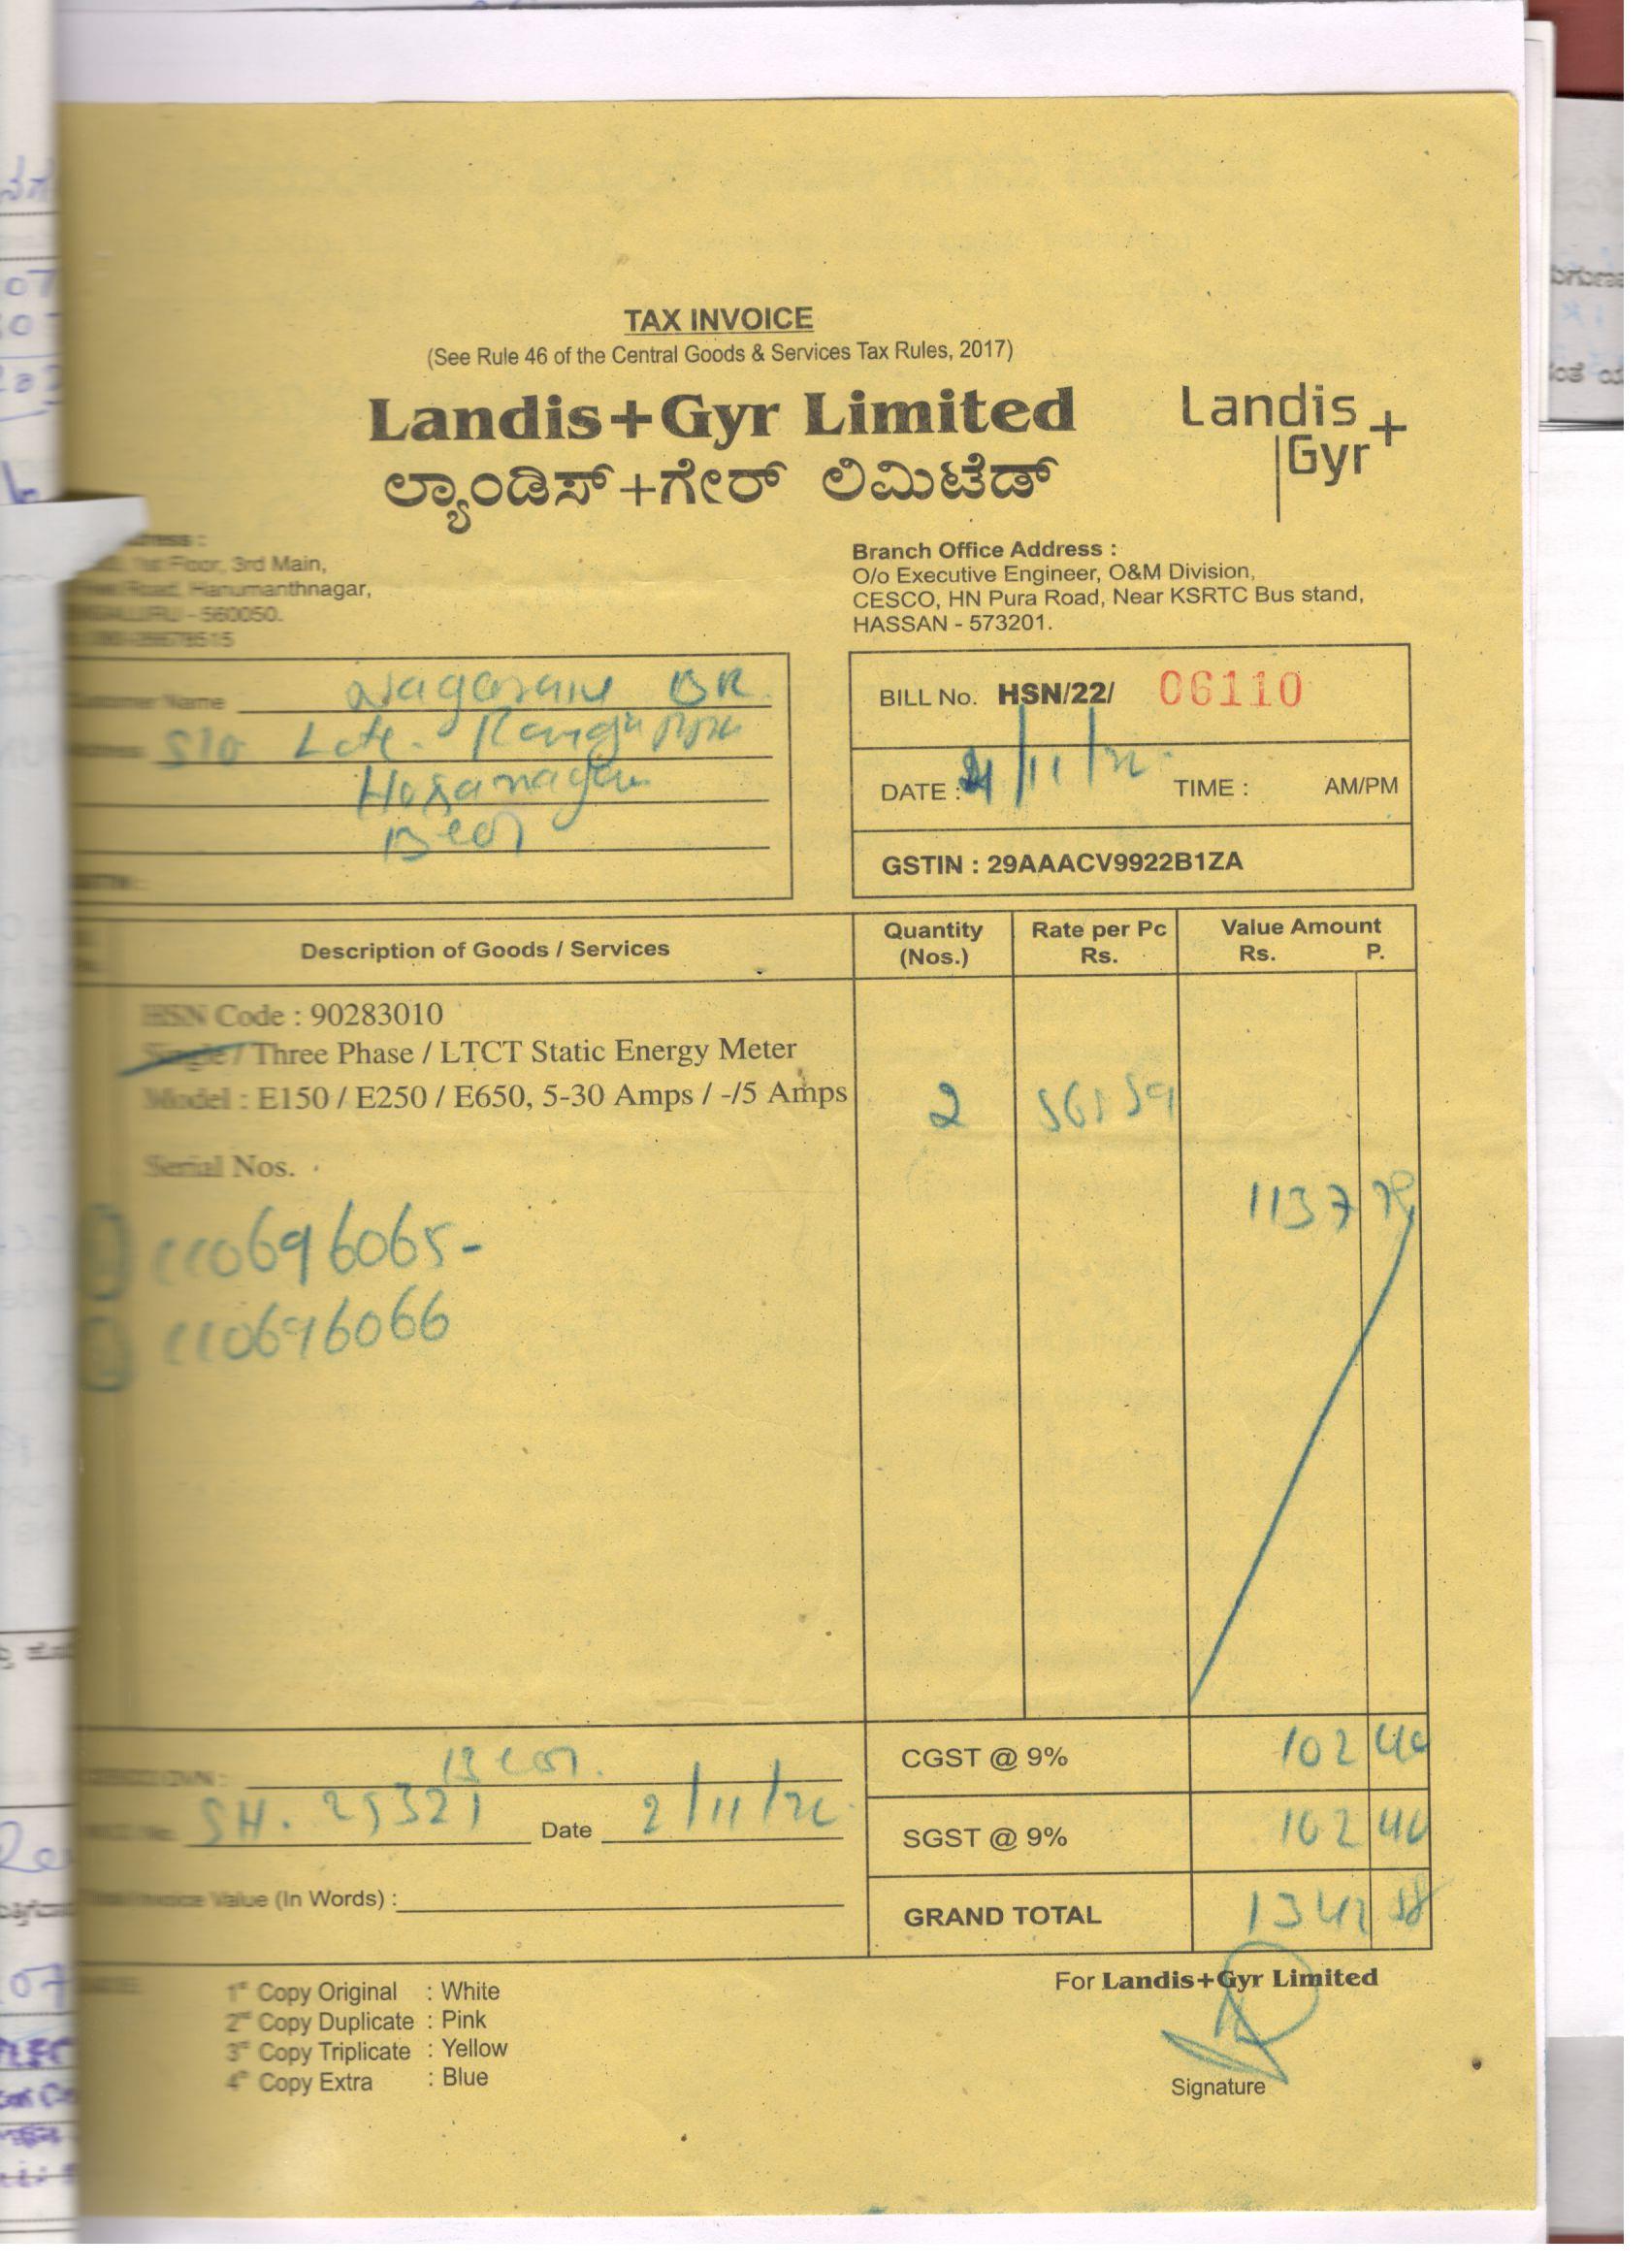 TAX INVOICE
(See Rule 46 of the Central Goods & Services Tax Rules, 2017)
Landis+Gyr Limited
ಲ್ಯಾಂಡಿಸ್+ಗೇರ್ ಲಿಮಿಟೆಡ್
Landis+
Gyr
1st Floor, 3rd Main,
Road, Hanumanthnagar,
- 560050.
Branch Office Address :
O/o Executive Engineer, O&M Division,
CESCO, HN Pura Road, Near KSRTC Bus stand,
HASSAN - 573201.
Customer Name BR
S/o Late.
BILL No. HSN/22/ 06110
DATE : /11/22 TIME : AM/PM
GSTIN : 29AAACV9922B1ZA
Description of Goods / Services
Quantity (Nos.)
Rate per Pc Rs.
Value Amount Rs. P.
HSN Code : 90283010
Single / Three Phase / LTCT Static Energy Meter
Model : E150 / E250 / E650, 5-30 Amps / -/5 Amps
2
Serial Nos.
1137
110696065-
110696066
CGST @ 9% 102 40
SH. 25321 Date 2/11/22
SGST @ 9% 102 40
Invoice Value (In Words) :
GRAND TOTAL 1342 58
1st Copy Original : White
2nd Copy Duplicate : Pink
3rd Copy Triplicate : Yellow
4th Copy Extra : Blue
For Landis+Gyr Limited
Signature